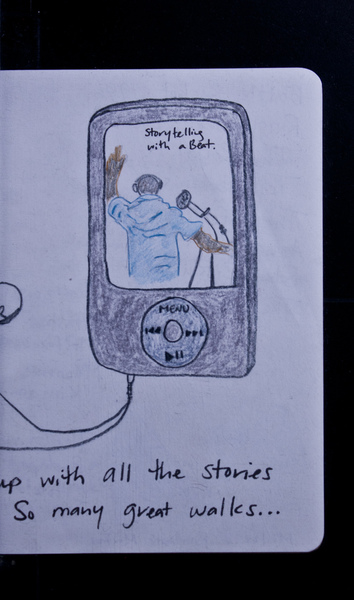 Storytelling
with a Beat.
MENU
up with all the stories
So many great walks...